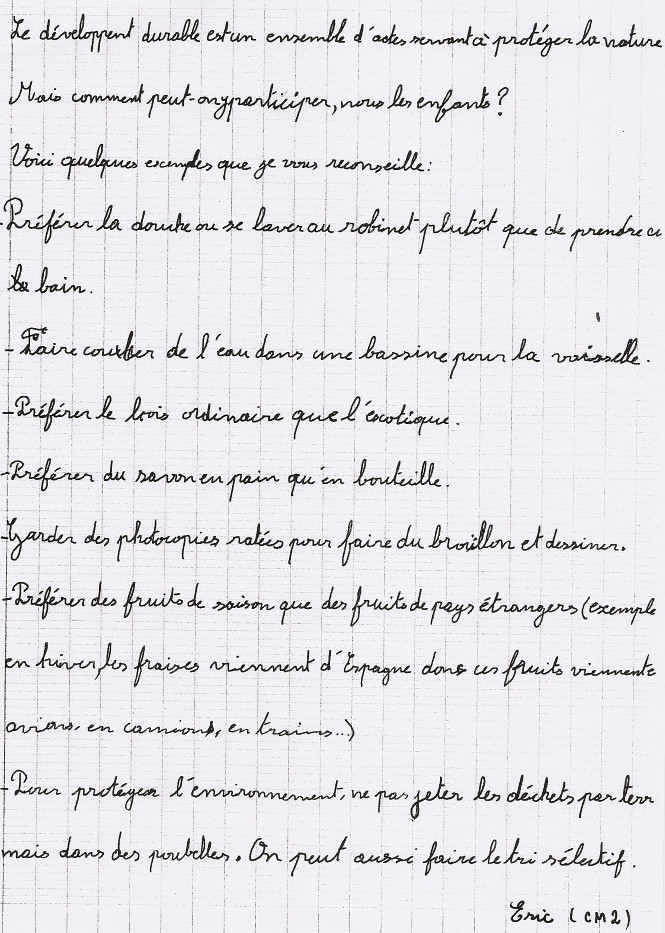 Le développent durable est un ensemble d'actes servant à protéger la nature
Mais comment peut-on y participer, nous les enfants ?
Voici quelques exemples que je vous reconseille :
-Préférer la douche ou se laver au robinet plutôt que de prendre
le bain.
- Faire couler de l'eau dans une bassine pour la vaisselle.
-Préférer le bois ordinaire que l'éxotique.
-Préférer du savon en pain qu'en bouteille.
-Garder des photocopies ratées pour faire du brouillon et dessiner.
-Préférer des fruits de saison que des fruits de pays étrangers (exemple
en hiver, les fraises viennent d'Espagne donc ces fruits viennent
avions, en camions, en trains...)
-Pour protéger l'environnement, ne pas jeter les déchets par terr
mais dans des poubelles. On peut aussi faire le tri sélectif.
Eric (CM2)